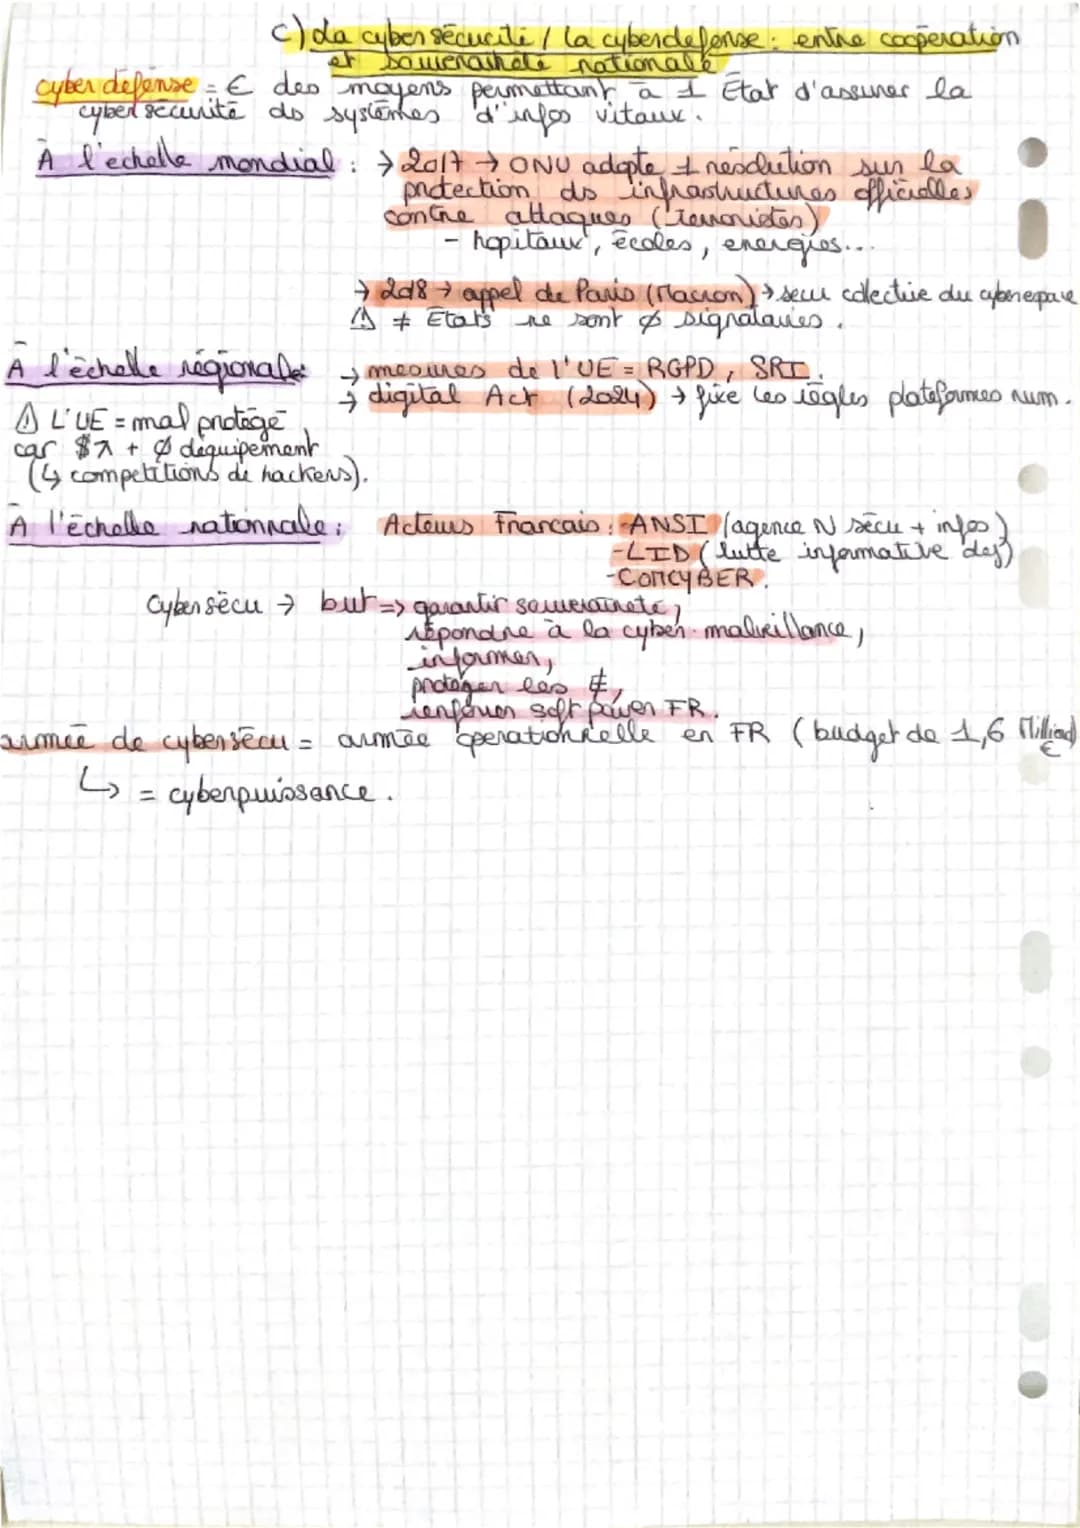 c) La cybersécurité / la cyberdéfense : entre coopération
et souveraineté nationale
cyberdéfense = € des moyens permettant à 1 État d'assurer la
cybersécurité ds systèmes d'infos vitaux.
À l'echelle mondial : → 2017 → ONU adopte 1 résolution sur la
protection ds infrastructures officielles
contre attaques (terroristes)
- hopitaux, écoles, energies...
→ 2018 → appel de Paris (Macron) → secu colective du cyberespace
⚠ ≠ États ne sont ∅ signataires.
À l'échelle régionale: → mesures de l'UE = RGPD, SRI.
→ digital Act (2024) → fixe les règles plateformes num.
⚠ L'UE = mal protégé
car $↗ + ∅ d'équipement
(↳ competitions de hackers).
À l'échelle nationnale : Acteurs Francais : -ANSI (agence N sécu + infos)
-LID (lutte informative def)
-COMCYBER.
Cybersécu → but => garantir souveraineté,
répondre à la cyber-malveillance,
informer,
protéger les E,
renforcer soft power FR.
armée de cybersécu = armée opérationnelle en FR (budget de 1,6 Milliard
€)
↳ = cyberpuissance.